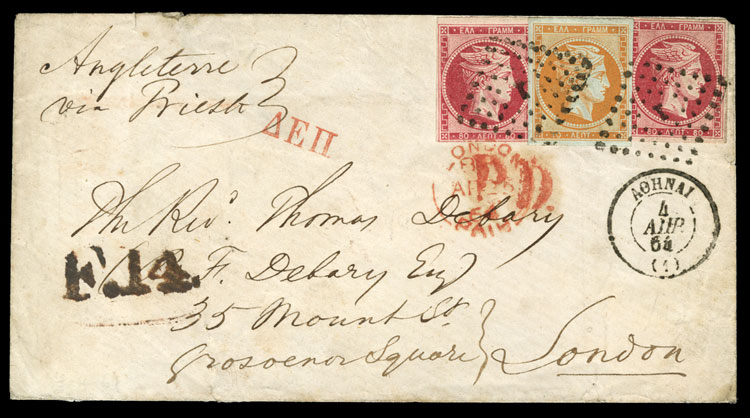 Angleterre
via Trieste
ΔΕΠ
ΕΛΛ ΓΡΑΜΜ
80 ΛΕΠΤ 80
ΕΛΛ ΓΡΑΜΜ
ΛΕΠΤ
ΕΛΛ ΓΡΑΜΜ
80 ΛΕΠΤ 80
LONDON
PAID
PD
ΑΘΗΝΑΙ
4
ΑΠΡ.
64
(1)
F.14.
The Revd. Thomas Debary
F. Debary Esq
35 Mount St.
Grosvenor Square
London